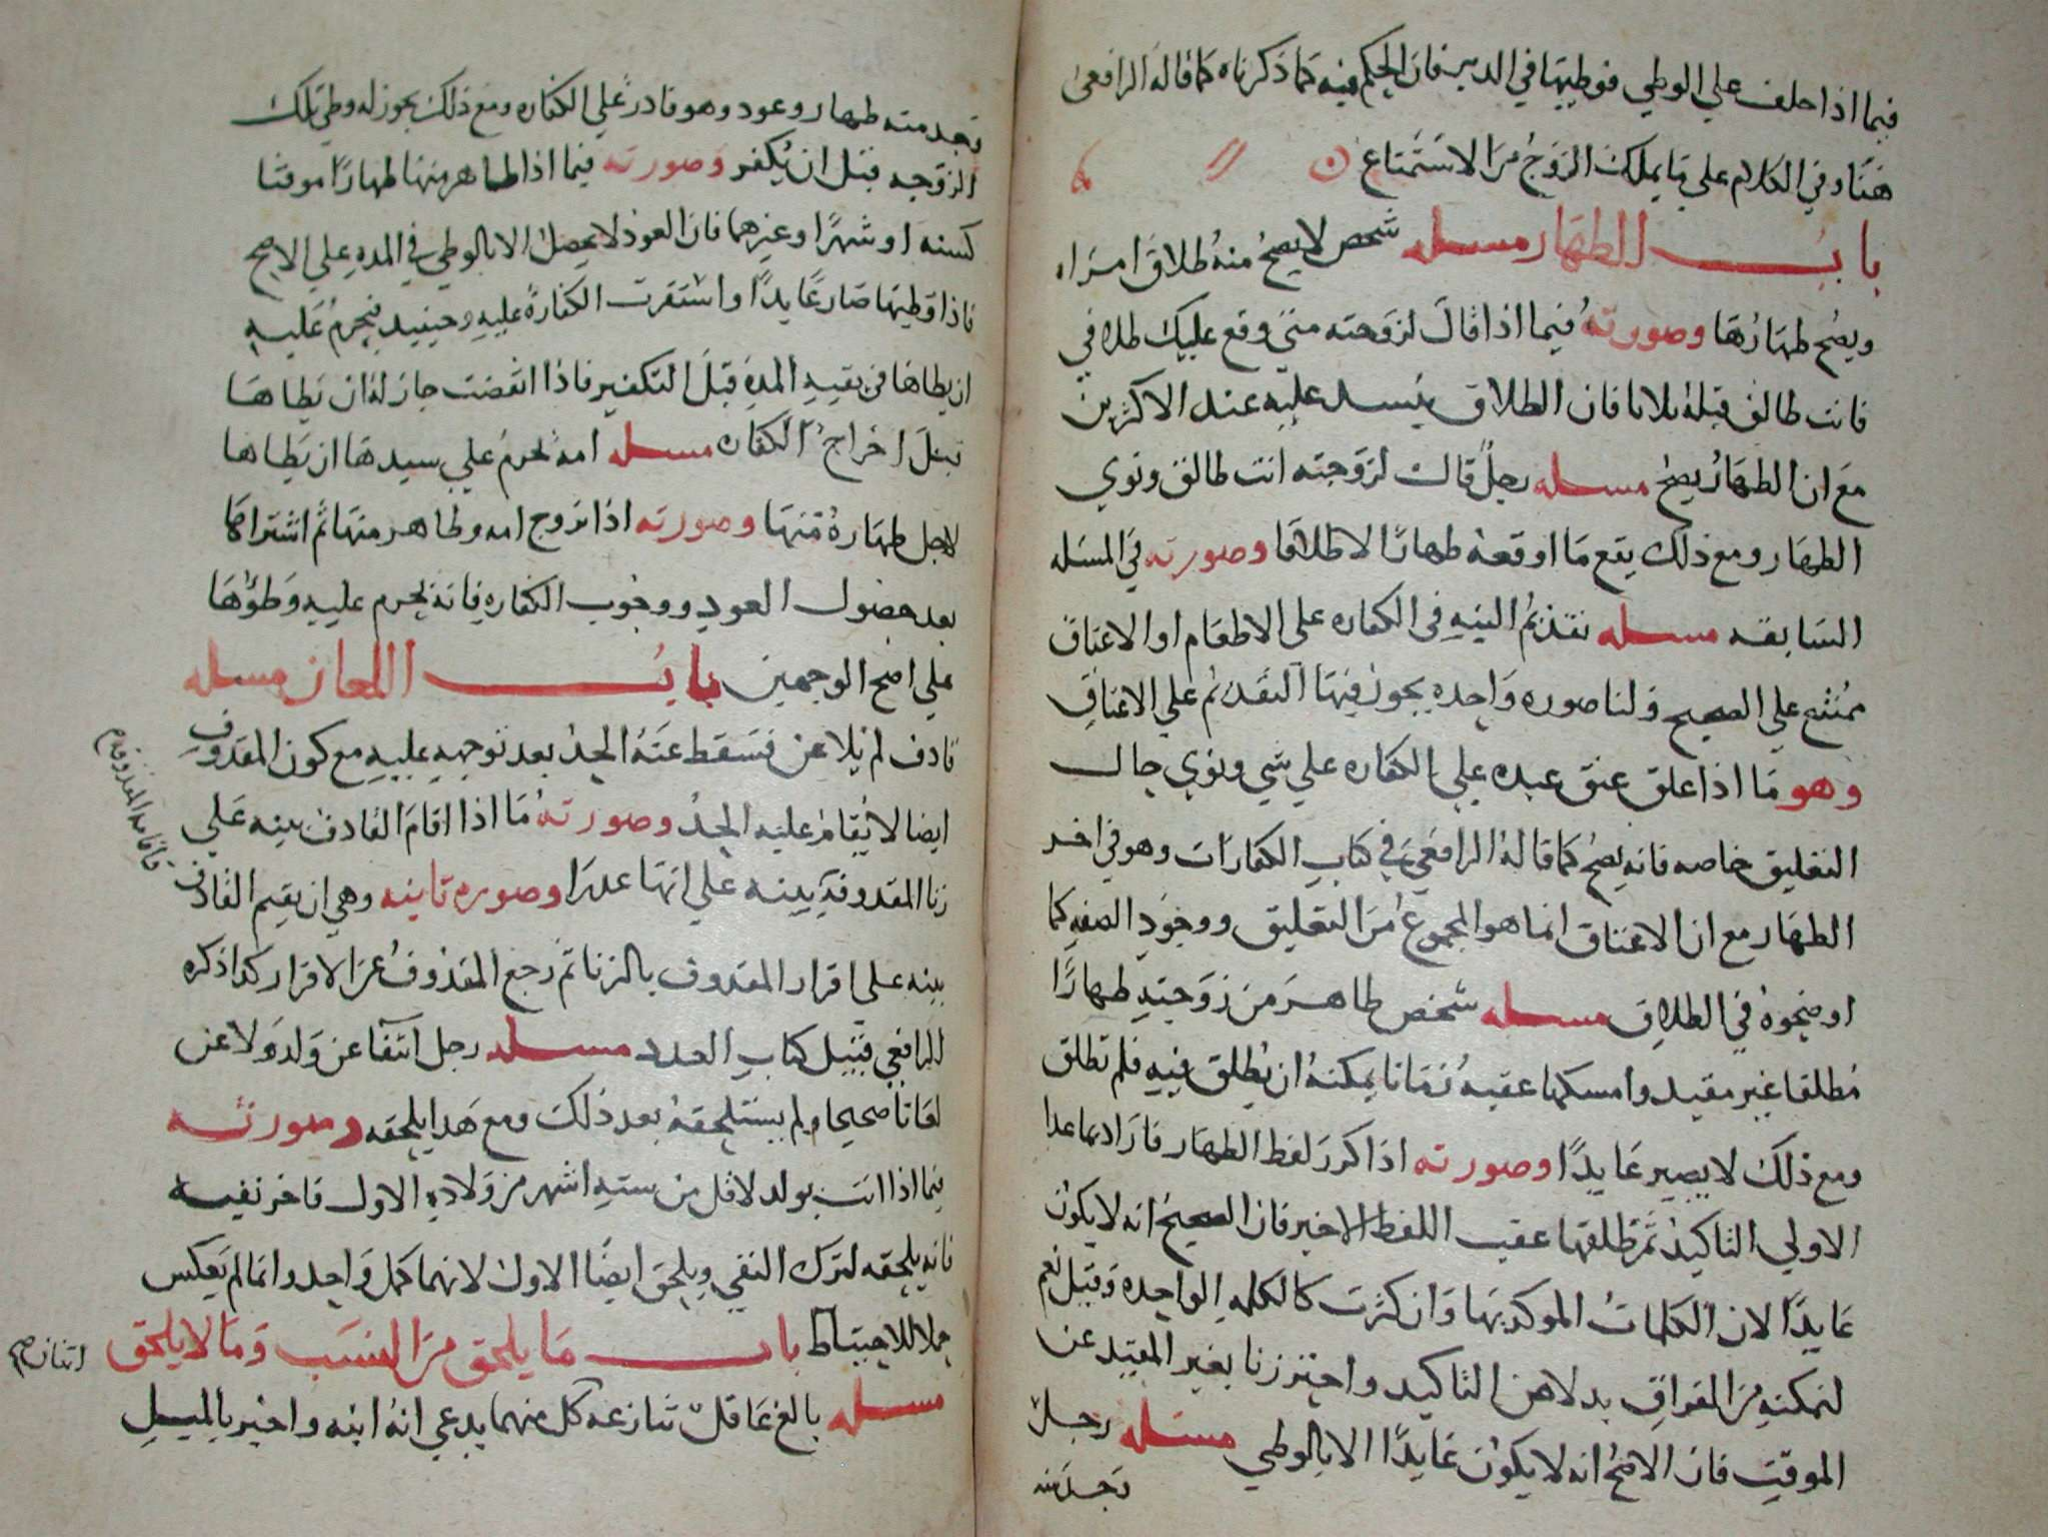 فيما اذا حلف علي الوطي فوطيها في الدبر فان الحكم فيه كما ذكرناه كما قاله الرافعي
هنا وفي الكلام علي ما يملك الزوج من الاستمتاع
باب الظهار مسله شخص لا يصح منه طلاق امراه
ويصح ظهارها وصورته فيما اذا قال لزوجته متي وقع عليك طلاقي
فانت طالق قبله ثلاثا فان الطلاق ينسد عليه عند الاكثرين
مع ان الظهار يصح مسله رجل قال لزوجته انت طالق ونوي
الظهار ومع ذلك يقع ما اوقعه ظهارا لا طلاقا وصورته في المسله
السابقه مسله تقديم النيه في الكفاره علي الاطعام او الاعتاق
ممتنع علي الصحيح ولنا صوره واحده يجوز فيها التقديم علي الاعتاق
وهو ما اذا علق عتق عبده علي الكفاره علي شي ونوي حال
التعليق خاصه فانه يصح كما قاله الرافعي في كتاب الكفارات وهو في اخر
الظهار مع ان الاعتاق انما هو المجموع من التعليق ووجود الصفه كما
اوضحوه في الطلاق مسله شخص ظاهر من زوجته ظهارا
مطلقا غير مقيد وامسكها عقبه زمانا يمكنه ان يطلق فيه فلم تطلق
ومع ذلك لا يصير عايدا وصورته اذا كرر لفظ الظهار فاراد بما عدا
الاولي التاكيد ثم طلقها عقب اللفظ الاخير فان الصحيح انه لا يكون
عايدا لان الكلمات الموكد بها وان كثرت كالكلمه الواحده وقيل نعم
لتمكنه من الفراق بدلا عن التاكيد واحترزنا بغير المقيد عن
الموقت فان الاصح انه لا يكون عايدا الا بالوطي مسله رجل
تجد منه
تجد منه ظهار وعود وهو قادر علي الكفاره ومع ذلك يجوز له وطي تلك
الزوجه قبل ان يكفر وصورته فيما اذا ظاهر منها ظهارا موقتا
كسنه او شهرا وغيرهما فان العود لا يحصل الا بالوطي في المده علي الاصح
فاذا وطيها صار عايدا واستقرت الكفاره عليه وحينيد فيحرم عليه
ان يطاها في بقيه المده قبل التكفير فاذا انقضت جاز له ان يطاها
قبل اخراج الكفاره مسله امه تحرم علي سيدها ان يطاها
لاجل ظهاره منها وصورته اذا تزوج امه وظاهر منها ثم اشتراها
بعد حصول العود ووجوب الكفاره فانه يحرم عليه وطؤها
علي اصح الوجهين باب اللعان مسله
قادف لم يلاعن فسقط عنه الحد بعد توجهه عليه مع كون المقدوف
ايضا لا يقام عليه الحد وصورته ما اذا اقام القادف بينه علي
زنا المقدوفه بينه علي انها عدرا وصوره تانيه وهي ان يقيم القادف
بينه علي اقرار المقدوف بالزنا ثم رجع المقذوف عن الاقرار كدا ذكره
الرافعي قبيل كتاب العدد مسله رجل انتفا عن ولد ولاعن
لعانا صحيحا ولم يستلحقه بعد ذلك ومع هدا يلحقه وصورته
فيما اذا اتت بولد لاقل من سته اشهر من ولاده الاول فاخر نفيه
فانه يلحقه لترك النفي ويلحق ايضا الاول لانهما حمل واحد وانما لم يعكس
حملا للاحتياط باب ما يلحق من النسب وما لا يلحق
مسله بالغ عاقل تنازعه كل منهما يدعي انه ابنه واخبر بالميل
اثنان صح